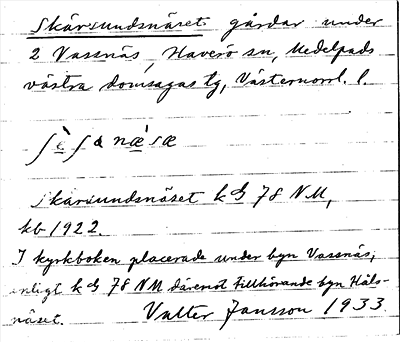 Skärsundsnäset gårdar under
2 Vassnäs, Haverö sn, Medelpads
västra domsagas tg, Västernorrl. l.
ʃè̱ʃa næ̱̀sæ
Skärsundsnäset k G 78 NM,
kb 1922.
I kyrkboken placerade under byn Vassnäs;
enligt k G 78 NM däremot tillhörande byn Häls-
näset. Valter Jansson 1933